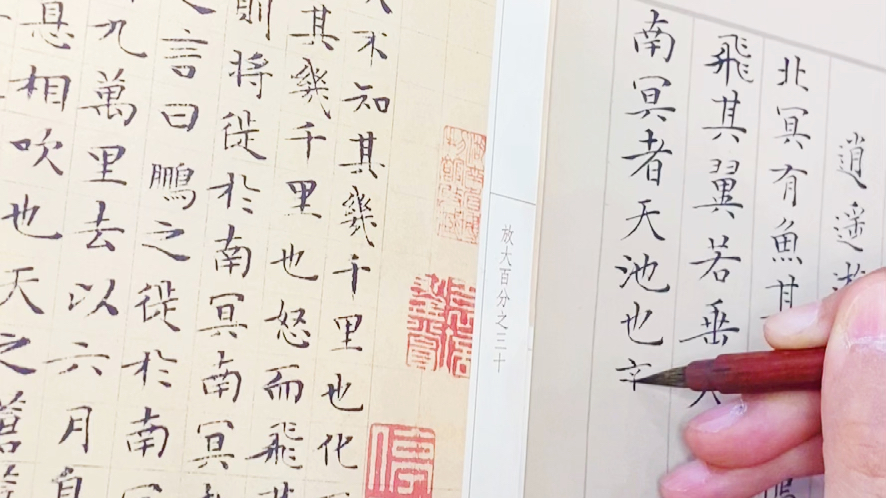 逍遙游
北冥有魚其
飛其翼若垂天
南冥者天池也
放大百分之三十
不知其幾千里也化
其幾千里也怒而飛
則將徙於南冥南冥
之言曰鵬之徙於南
九萬里去以六月息
息相吹也天之蒼